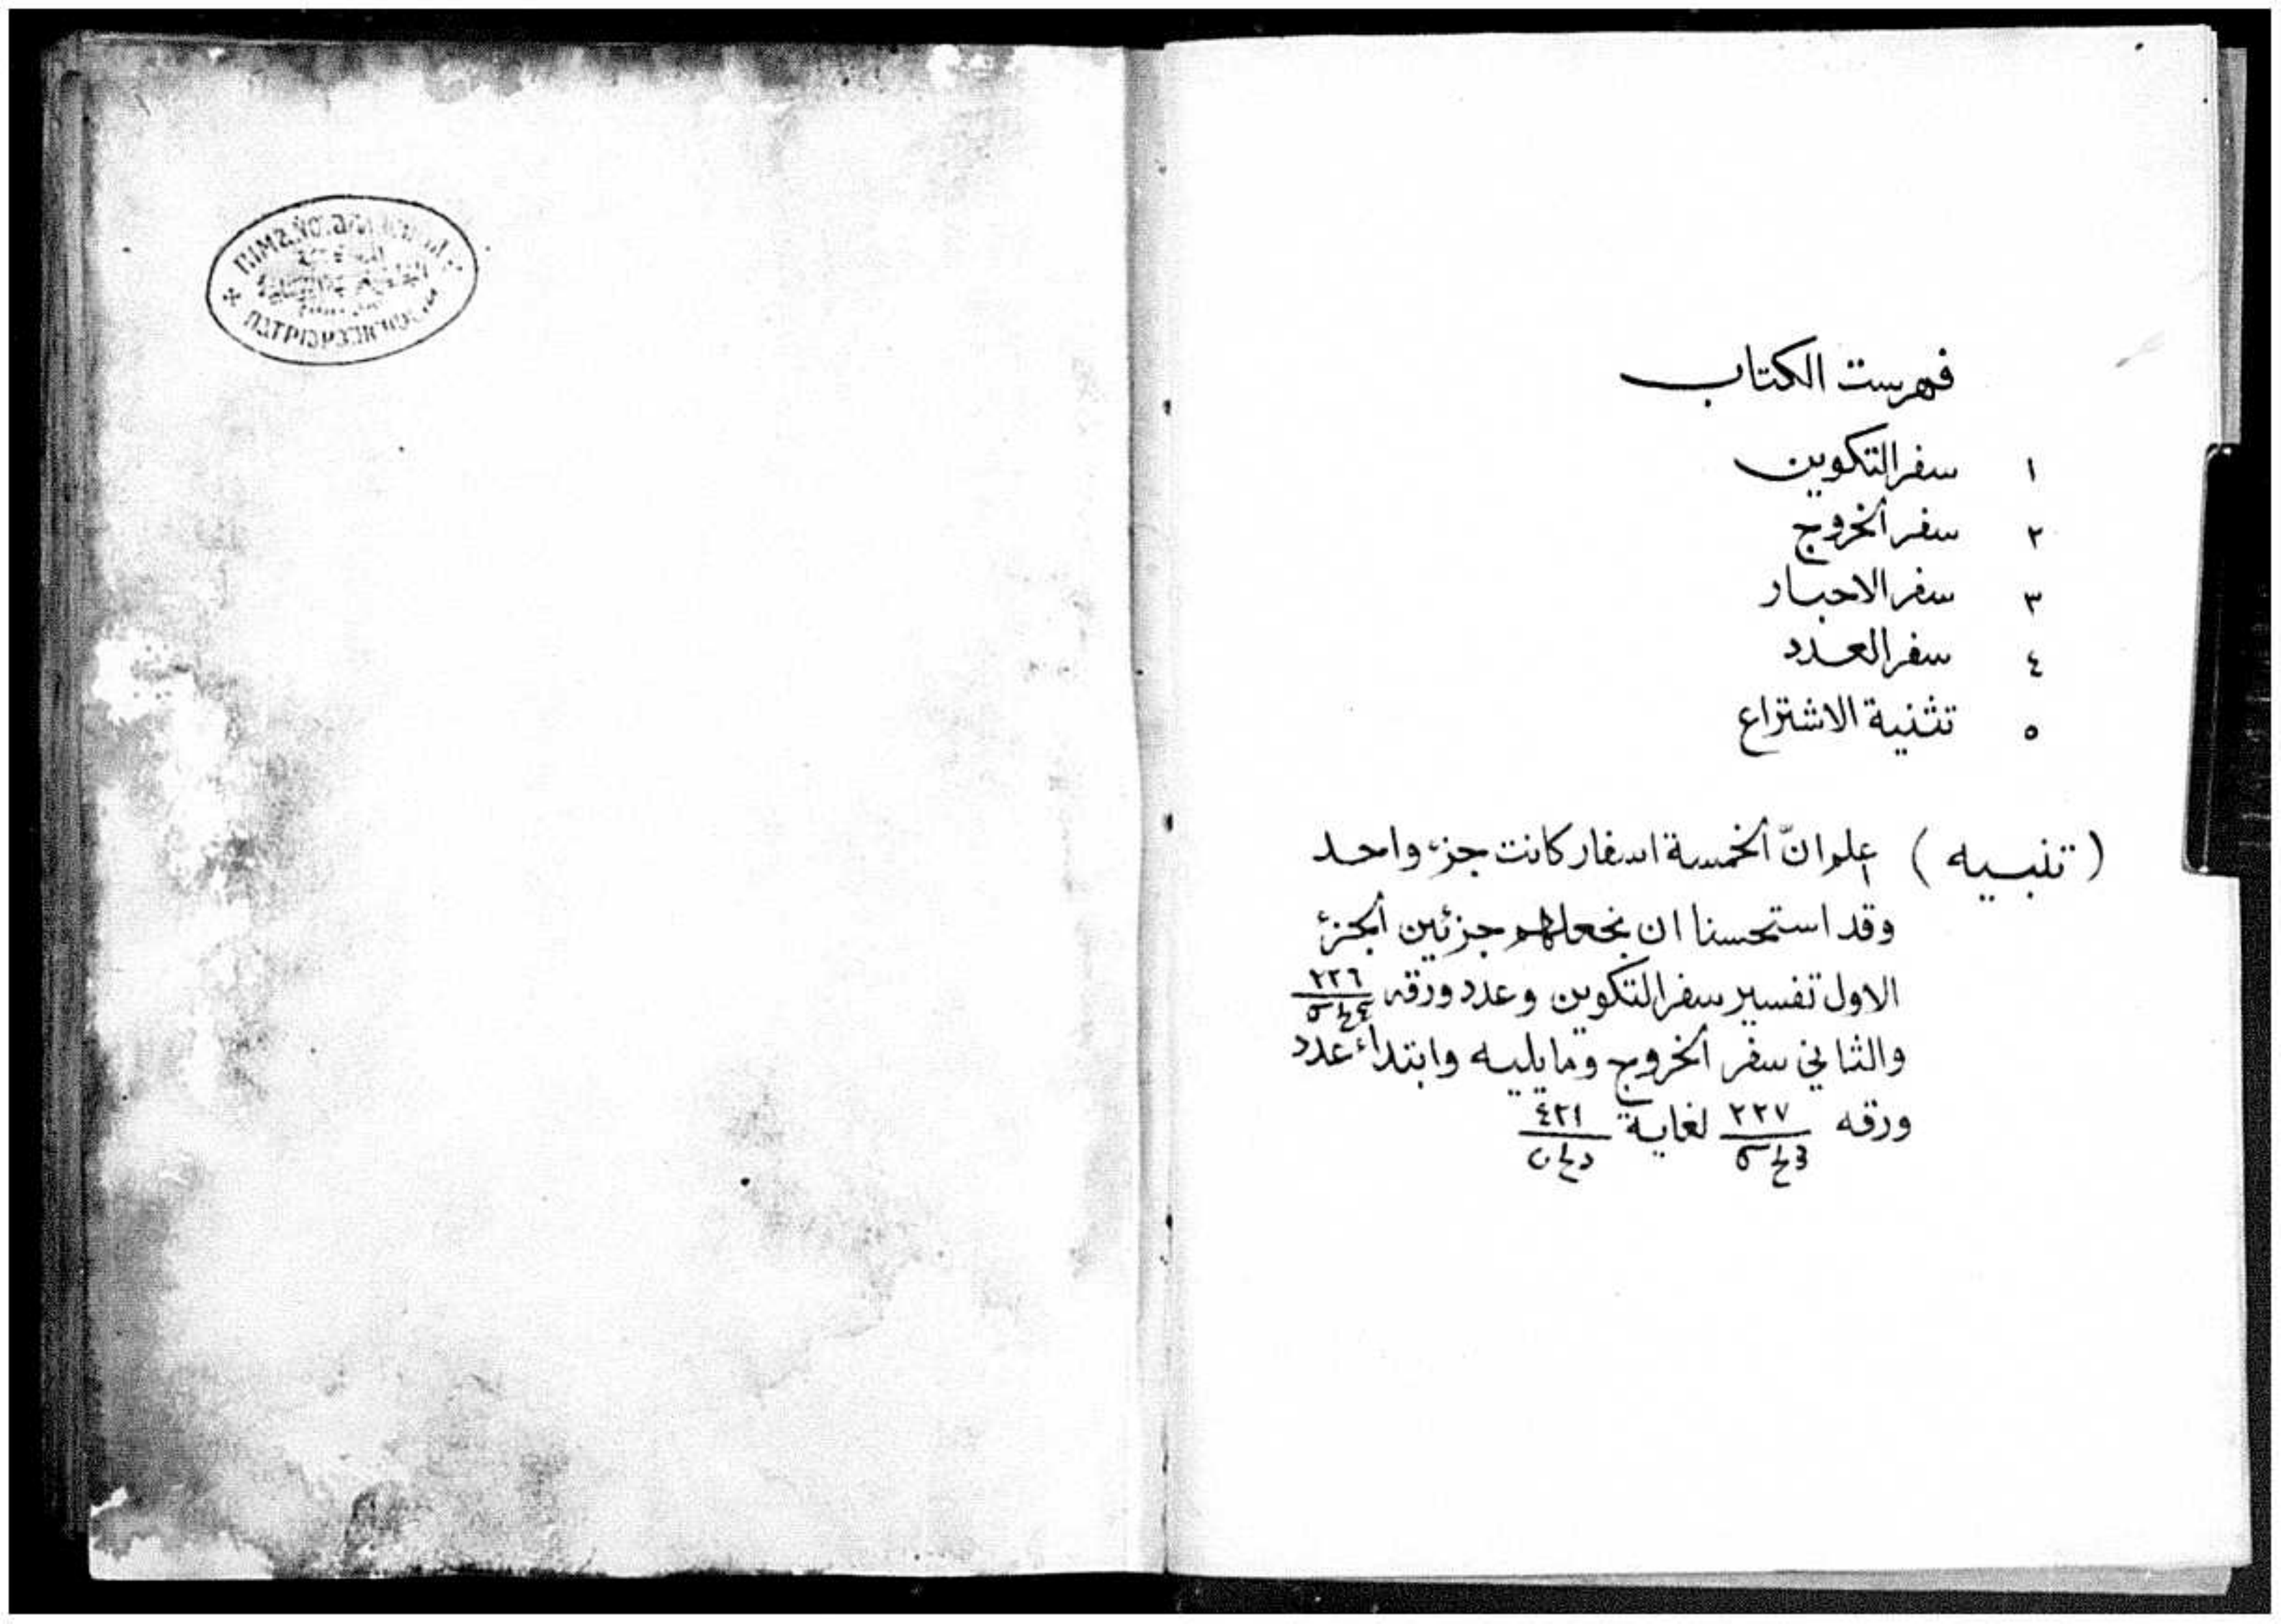 فهرست الكتاب
١ سفر التكوين
٢ سفر الخروج
٣ سفر الاحبار
٤ سفر العدد
٥ تثنية الاشتراع
(تنبيه) اعلم انّ الخمسة اسفار كانت جزء واحد
وقد استحسنا ان نجعلهم جزئين الجزئ
الاول تفسير سفر التكوين وعدد ورقه ٢٢٦
والثاني سفر الخروج وما يليه وابتداء عدد
ورقه ٢٢٧ لغاية ٤٢١